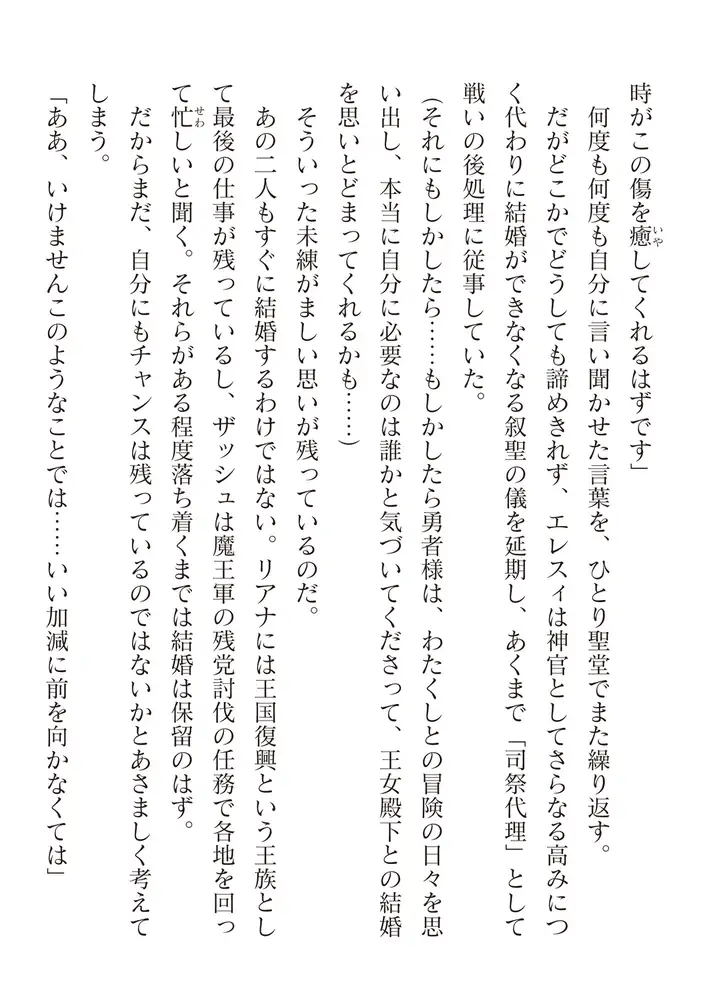 時がこの傷を癒してくれるはずです」
何度も何度も自分に言い聞かせた言葉を、ひとり聖堂でまた繰り返す。
だがどこかでどうしても諦めきれず、エレスィは神官としてさらなる高みにつ
く代わりに結婚ができなくなる叙聖の儀を延期し、あくまで「司祭代理」として
戦いの後処理に従事していた。
(それにもしかしたら……もしかしたら勇者様は、わたくしとの冒険の日々を思
い出し、本当に自分に必要なのは誰かと気づいてくださって、王女殿下との結婚
を思いとどまってくれるかも……)
そういった未練がましい思いが残っているのだ。
あの二人もすぐに結婚するわけではない。リアナには王国復興という王族とし
て最後の仕事が残っているし、ザッシュは魔王軍の残党討伐の任務で各地を回っ
て忙しいと聞く。それらがある程度落ち着くまでは結婚は保留のはず。
だからまだ、自分にもチャンスは残っているのではないかとあさましく考えて
しまう。
「ああ、いけませんこのようなことでは……いい加減に前を向かなくては」